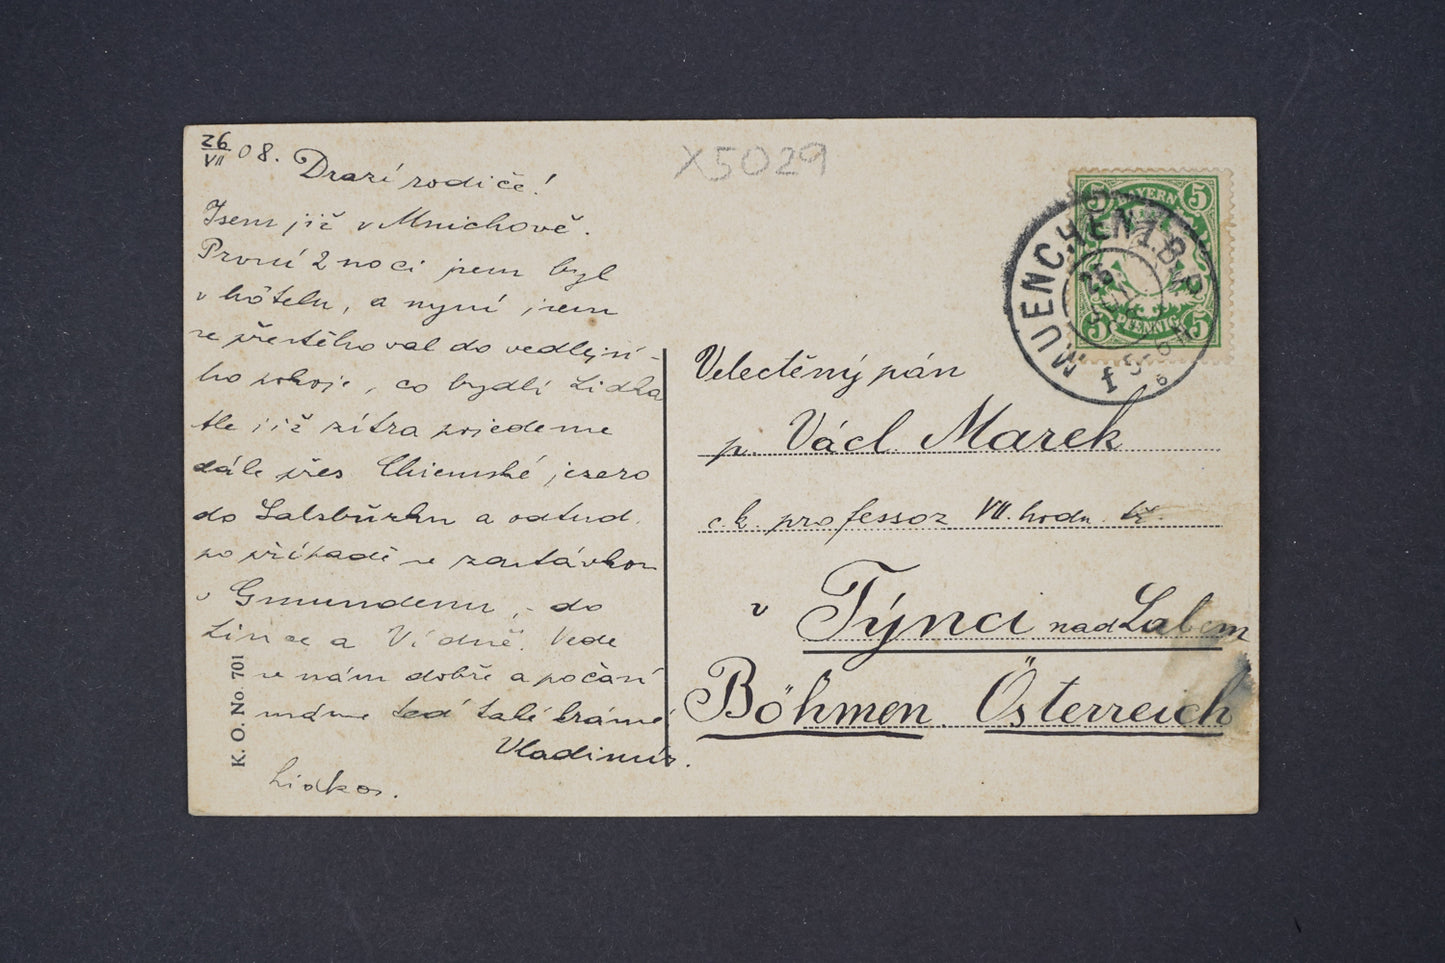 26/VII 08.
Drazí rodiče!
Jsem již v Mnichově.
První 2 noci jsem byl
v hôtelu, a nyní jsem
se přestěhoval do vedlejší-
ho pokoje, co bydlí Lidka
Ale již zítra pojedeme
dále přes Chiemské jezero
do Salzbůrku a odtud
po případě se zastávkou
v Gmundenu, do
Lince a Vídně. Vede
se nám dobře a počasí
máme teď také krásné.
Vladimír.
K. O. No. 701
X5029
BAYERN
5 5
PFENNIG
5 5
MUENCHEN 1. B.P.
Velectěný pán
p. Václ. Marek
c.k. professor VII. hodn. tř.
v Týnci nad Labem
Böhmen. Österreich